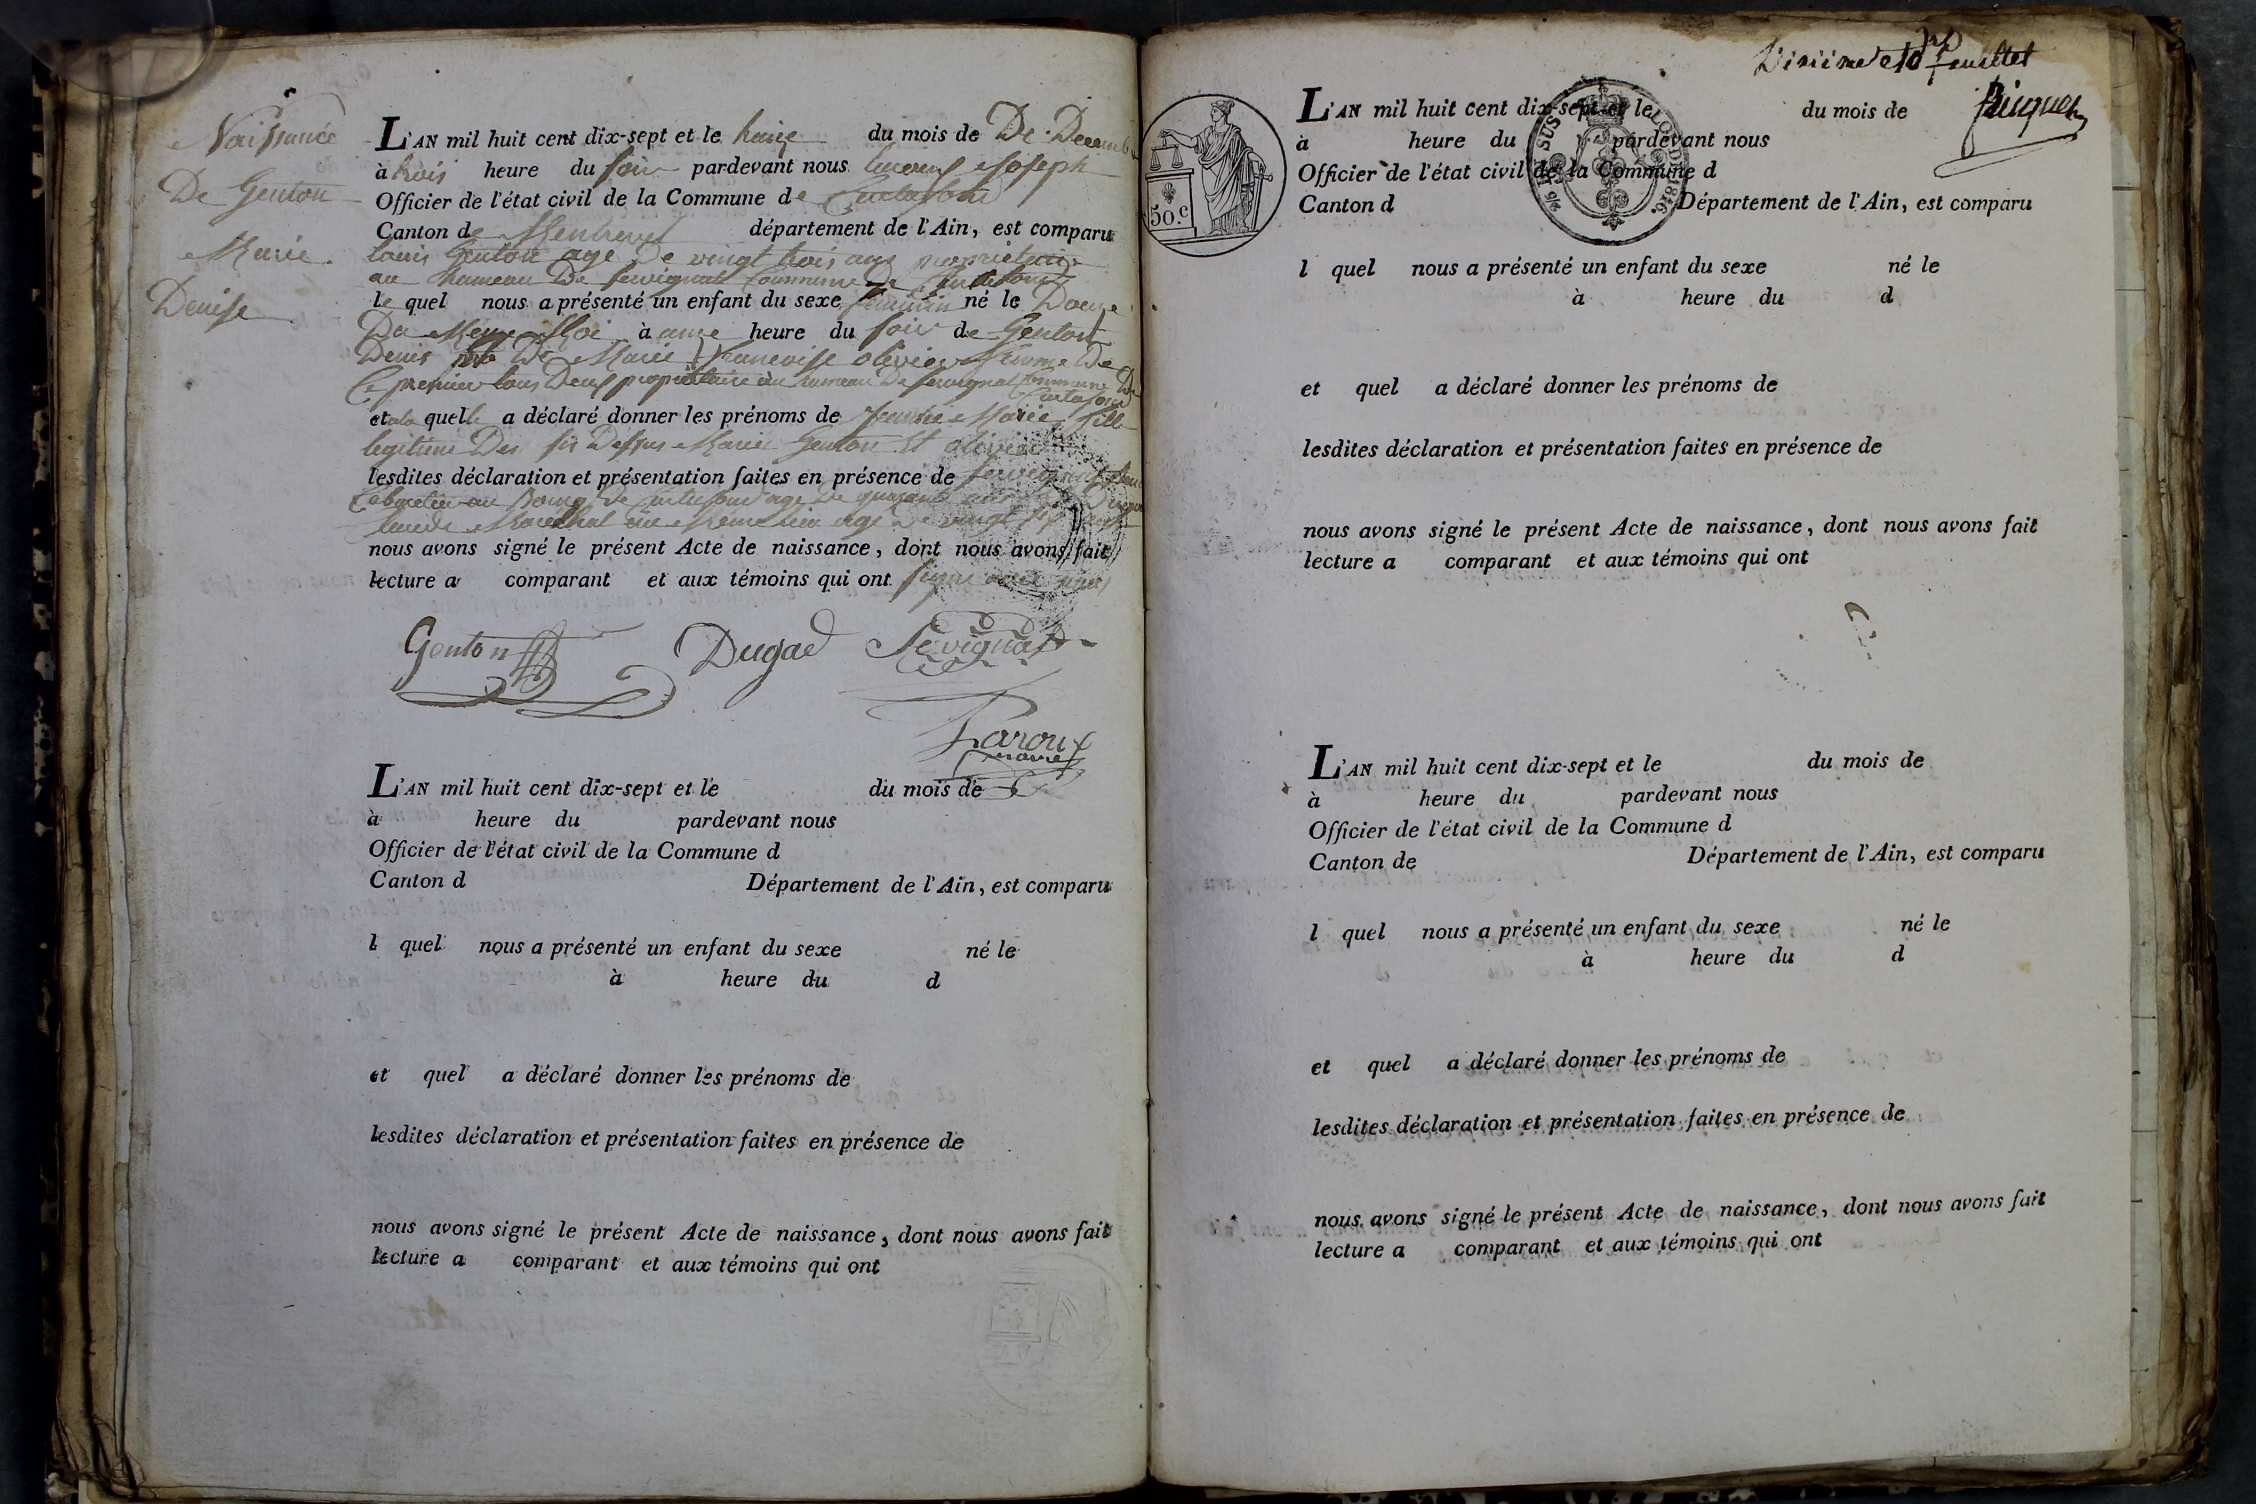 Naissance
De Genton
Marie
Denise
L'AN mil huit cent dix-sept et le treize du mois de De Decembre
à trois heure du soir pardevant nous Joseph
Officier de l'état civil de la Commune de Curtafond
Canton de Montrevel département de l'Ain, est comparu
louis Genton agé De vingt trois ans proprietaire
au hameau De Servignat Commune De Curtafond
le quel nous a présenté un enfant du sexe feminin né le Douze
Du Meme Moi à onze heure du soir de Genton
Denis De Marie francoise olivier femme De
Ce premier tous Deux propriétaire au hameau De Servignat Commune De
Curtafond
et quelle a déclaré donner les prénoms de Marie fille
legitime Des Dessus Mariés Genton et olivier
lesdites déclaration et présentation faites en présence de
Cabaretier au Bourg De Curtafond agé De quarante ans
Marechal au Meme lieu agé De vingt
nous avons signé le présent Acte de naissance, dont nous avons fait
lecture a comparant et aux témoins qui ont signé avec nous
Genton Dugad Sevignat
Laroux
maire
L'AN mil huit cent dix-sept et le du mois de
à heure du pardevant nous
Officier de l'état civil de la Commune d
Canton d Département de l'Ain, est comparu
l quel nous a présenté un enfant du sexe né le
à heure du d
et quel a déclaré donner les prénoms de
lesdites déclaration et présentation faites en présence de
nous avons signé le présent Acte de naissance, dont nous avons fait
lecture a comparant et aux témoins qui ont
10 feuillet
50 c
L'AN mil huit cent dix-sept et le du mois de
à heure du pardevant nous
Officier de l'état civil de la Commune d
Canton d Département de l'Ain, est comparu
LOI DE 1816.
l quel nous a présenté un enfant du sexe né le
à heure du d
et quel a déclaré donner les prénoms de
lesdites déclaration et présentation faites en présence de
nous avons signé le présent Acte de naissance, dont nous avons fait
lecture a comparant et aux témoins qui ont
L'AN mil huit cent dix-sept et le du mois de
à heure du pardevant nous
Officier de l'état civil de la Commune d
Canton de Département de l'Ain, est comparu
l quel nous a présenté un enfant du sexe né le
à heure du d
et quel a déclaré donner les prénoms de
lesdites déclaration et présentation faites en présence de
nous avons signé le présent Acte de naissance, dont nous avons fait
lecture a comparant et aux témoins qui ont